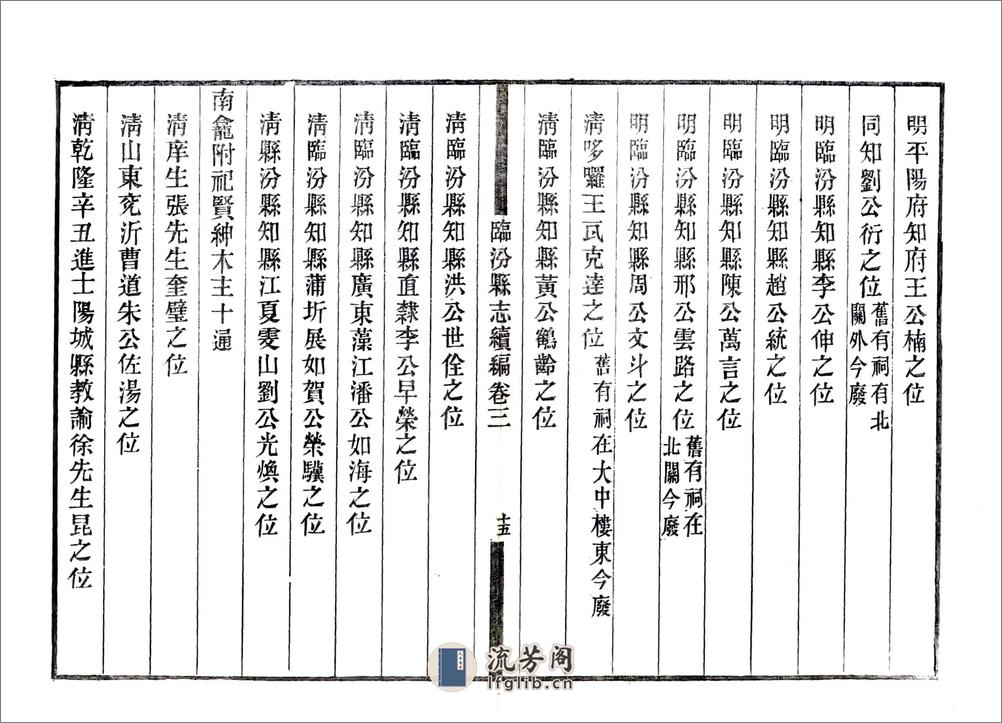 明平陽府知府王公楠之位
同知劉公衍之位舊有祠有北關外今廢
明臨汾縣知縣李公伸之位
明臨汾縣知縣趙公統之位
明臨汾縣知縣陳公萬言之位
明臨汾縣知縣邢公雲路之位舊有祠在北關今廢
明臨汾縣知縣周公文斗之位
淸哆囉王瓦克達之位舊有祠在大中樓東今廢
淸臨汾縣知縣黃公鶴齡之位
臨汾縣志續編卷三
十五
淸臨汾縣知縣洪公世佺之位
淸臨汾縣知縣直隸李公早榮之位
淸臨汾縣知縣廣東藻江潘公如海之位
淸臨汾縣知縣蒲圻展如賀公榮驥之位
淸縣汾縣知縣江夏雯山劉公光煥之位
南龕附祀賢紳木主十通
淸庠生張先生奎璧之位
淸山東兗沂曹道朱公佐湯之位
淸乾隆辛丑進士陽城縣教諭徐先生昆之位
流芳阁
lfglib.cn